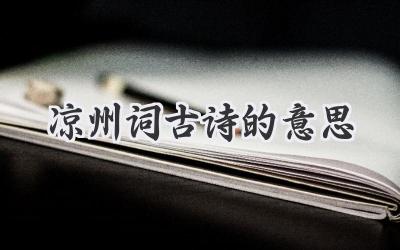 凉州词古诗的意思